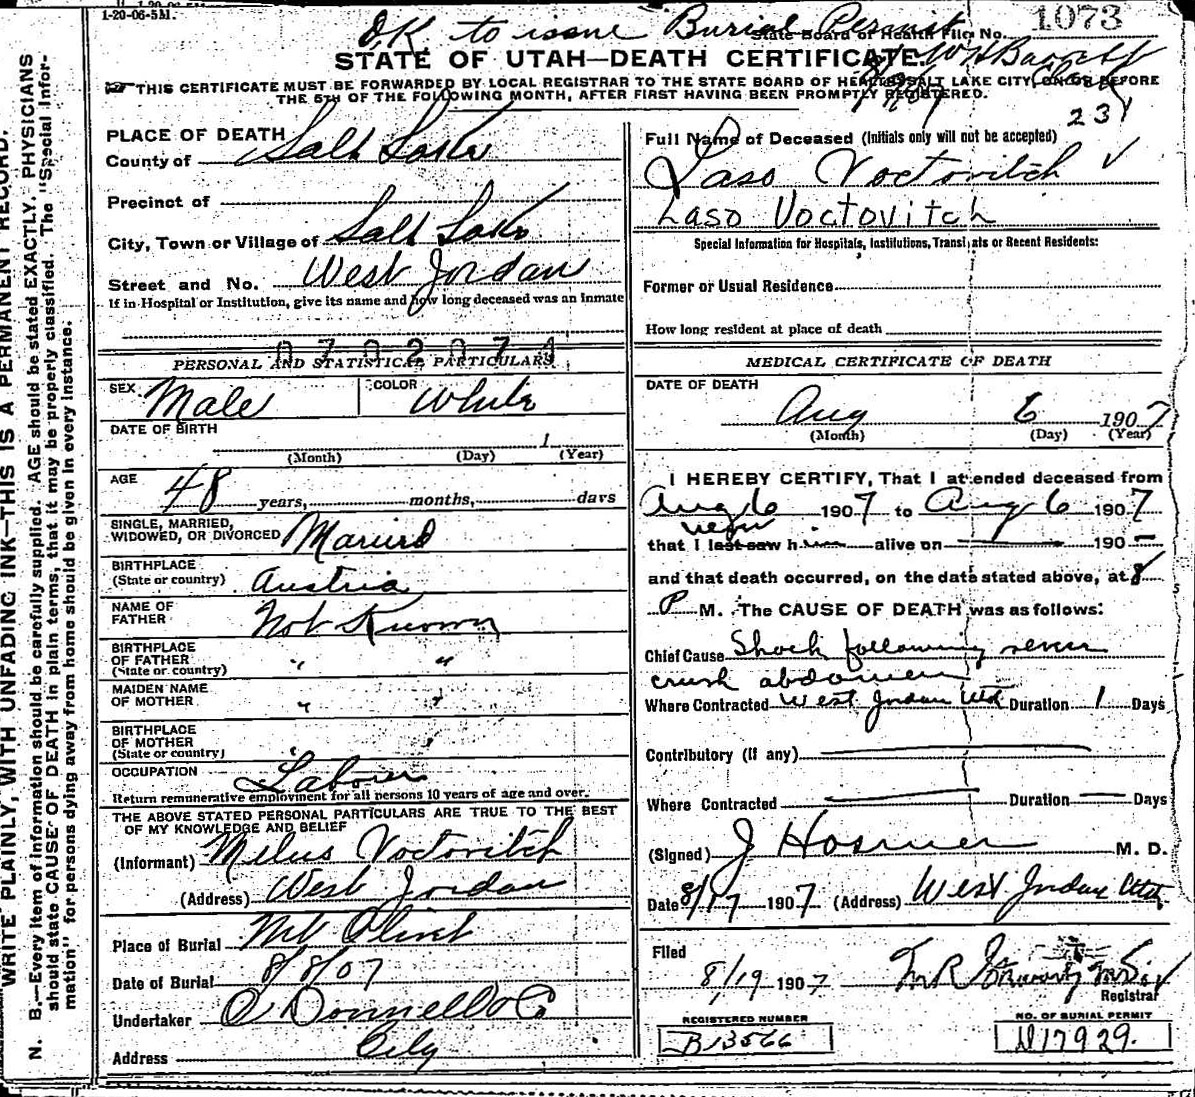 1-20-06-5M.
O.K. to issue Burial Permit
State Board of Health File No. 1073
STATE OF UTAH—DEATH CERTIFICATE.
THIS CERTIFICATE MUST BE FORWARDED BY LOCAL REGISTRAR TO THE STATE BOARD OF HEALTH, SALT LAKE CITY, ON OR BEFORE
THE 5TH OF THE FOLLOWING MONTH, AFTER FIRST HAVING BEEN PROMPTLY REGISTERED.
231
WRITE PLAINLY, WITH UNFADING INK—THIS IS A PERMANENT RECORD.
N. B.—Every item of information should be carefully supplied. AGE should be stated EXACTLY. PHYSICIANS
should state CAUSE OF DEATH in plain terms, that it may be properly classified. The "Special Infor-
mation" for persons dying away from home should be given in every instance.
PLACE OF DEATH
County of Salt Lake
Precinct of
City, Town or Village of Salt Lake
Street and No. West Jordan
If in Hospital or Institution, give its name and how long deceased was an Inmate
0702074
PERSONAL AND STATISTICAL PARTICULARS
SEX Male COLOR White
DATE OF BIRTH
1
(Month) (Day) (Year)
AGE 48 years, months, days
SINGLE, MARRIED,
WIDOWED, OR DIVORCED Married
BIRTHPLACE
(State or country) Austria
NAME OF
FATHER Not Known
BIRTHPLACE
OF FATHER
(State or country) " "
MAIDEN NAME
OF MOTHER " "
BIRTHPLACE
OF MOTHER
(State or country) " "
OCCUPATION Laborer
Return remunerative employment for all persons 10 years of age and over.
THE ABOVE STATED PERSONAL PARTICULARS ARE TRUE TO THE BEST
OF MY KNOWLEDGE AND BELIEF
(Informant) Milus Voctovitch
(Address) West Jordan
Place of Burial Mt Olivet
Date of Burial 8/8/07
Undertaker O Donnell & Co
Address City
Full Name of Deceased (Initials only will not be accepted)
Laso Voctovitch
Laso Voctovitch
Special Information for Hospitals, Institutions, Transients or Recent Residents:
Former or Usual Residence
How long resident at place of death
MEDICAL CERTIFICATE OF DEATH
DATE OF DEATH
Aug 6 1907
(Month) (Day) (Year)
I HEREBY CERTIFY, That I attended deceased from
Aug 6 1907 to Aug 6 1907
never
that I last saw him alive on 190
and that death occurred, on the date stated above, at 8
P M. The CAUSE OF DEATH was as follows:
Chief Cause Shock following severe
crush abdomen
Where Contracted West Jordan Utd Duration 1 Days
Contributory (if any)
Where Contracted Duration Days
(Signed) J Hosmer M. D.
Date 8/17 1907 (Address) West Jordan Utah
Filed
8/19 1907
Registrar
REGISTERED NUMBER
B13566
NO. OF BURIAL PERMIT
D17929.